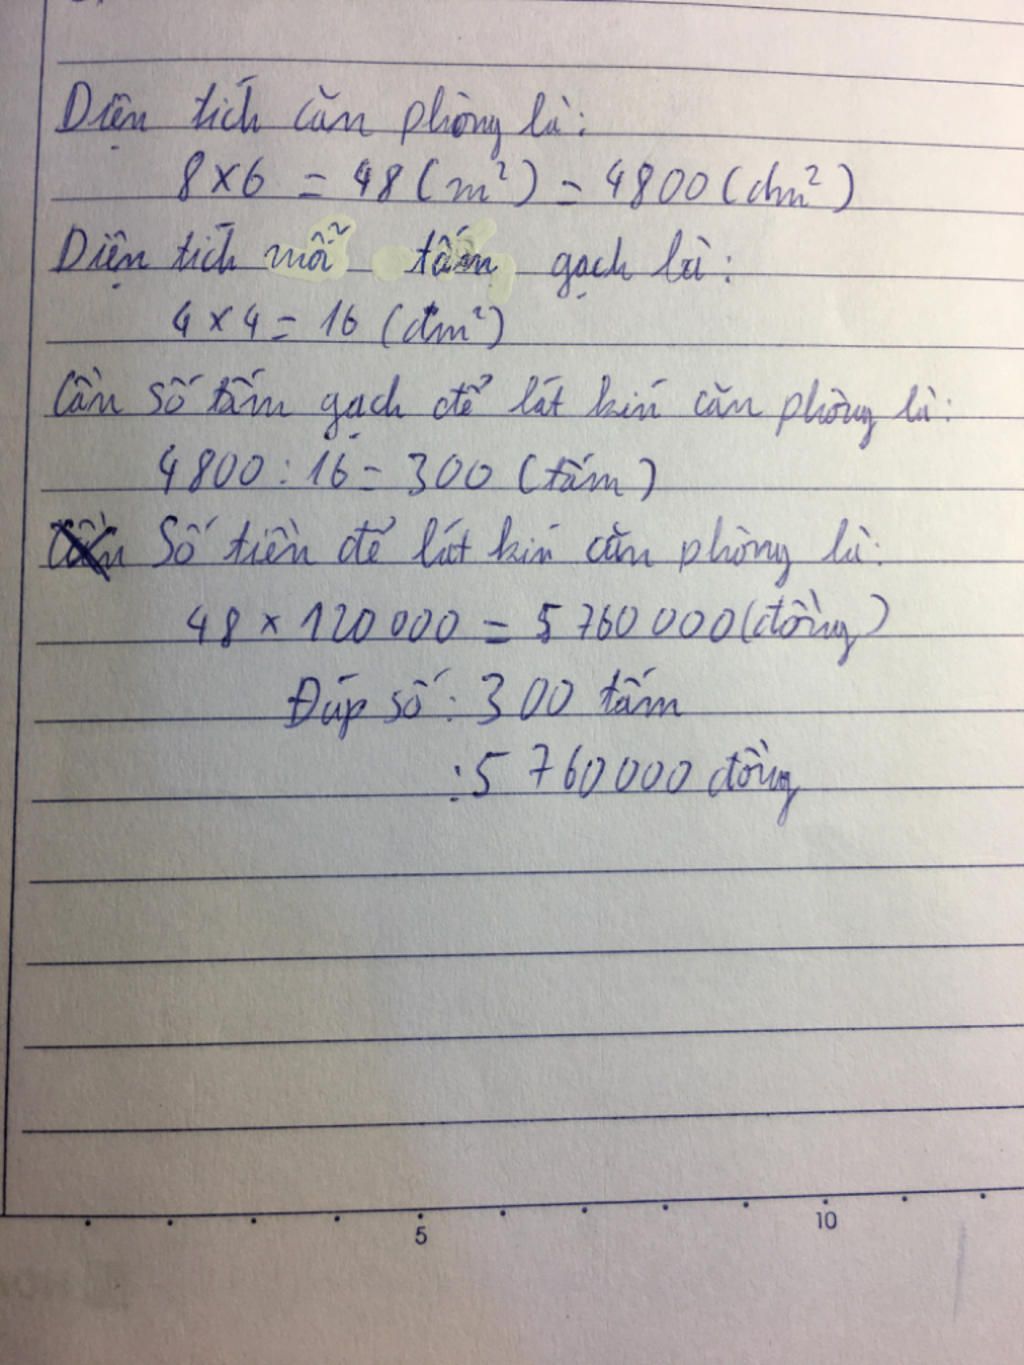 Diện tích căn phòng là:
8 x 6 = 48 (m²) = 4800 (dm²)
Diện tích mỗi tấm gạch là:
4 x 4 = 16 (dm²)
Cần số tấm gạch để lát kín căn phòng là:
4800 : 16 = 300 (tấm)
Số tiền để lát kín căn phòng là:
48 x 120 000 = 5 760 000 (đồng)
Đáp số: 300 tấm
: 5 760 000 đồng
5 10